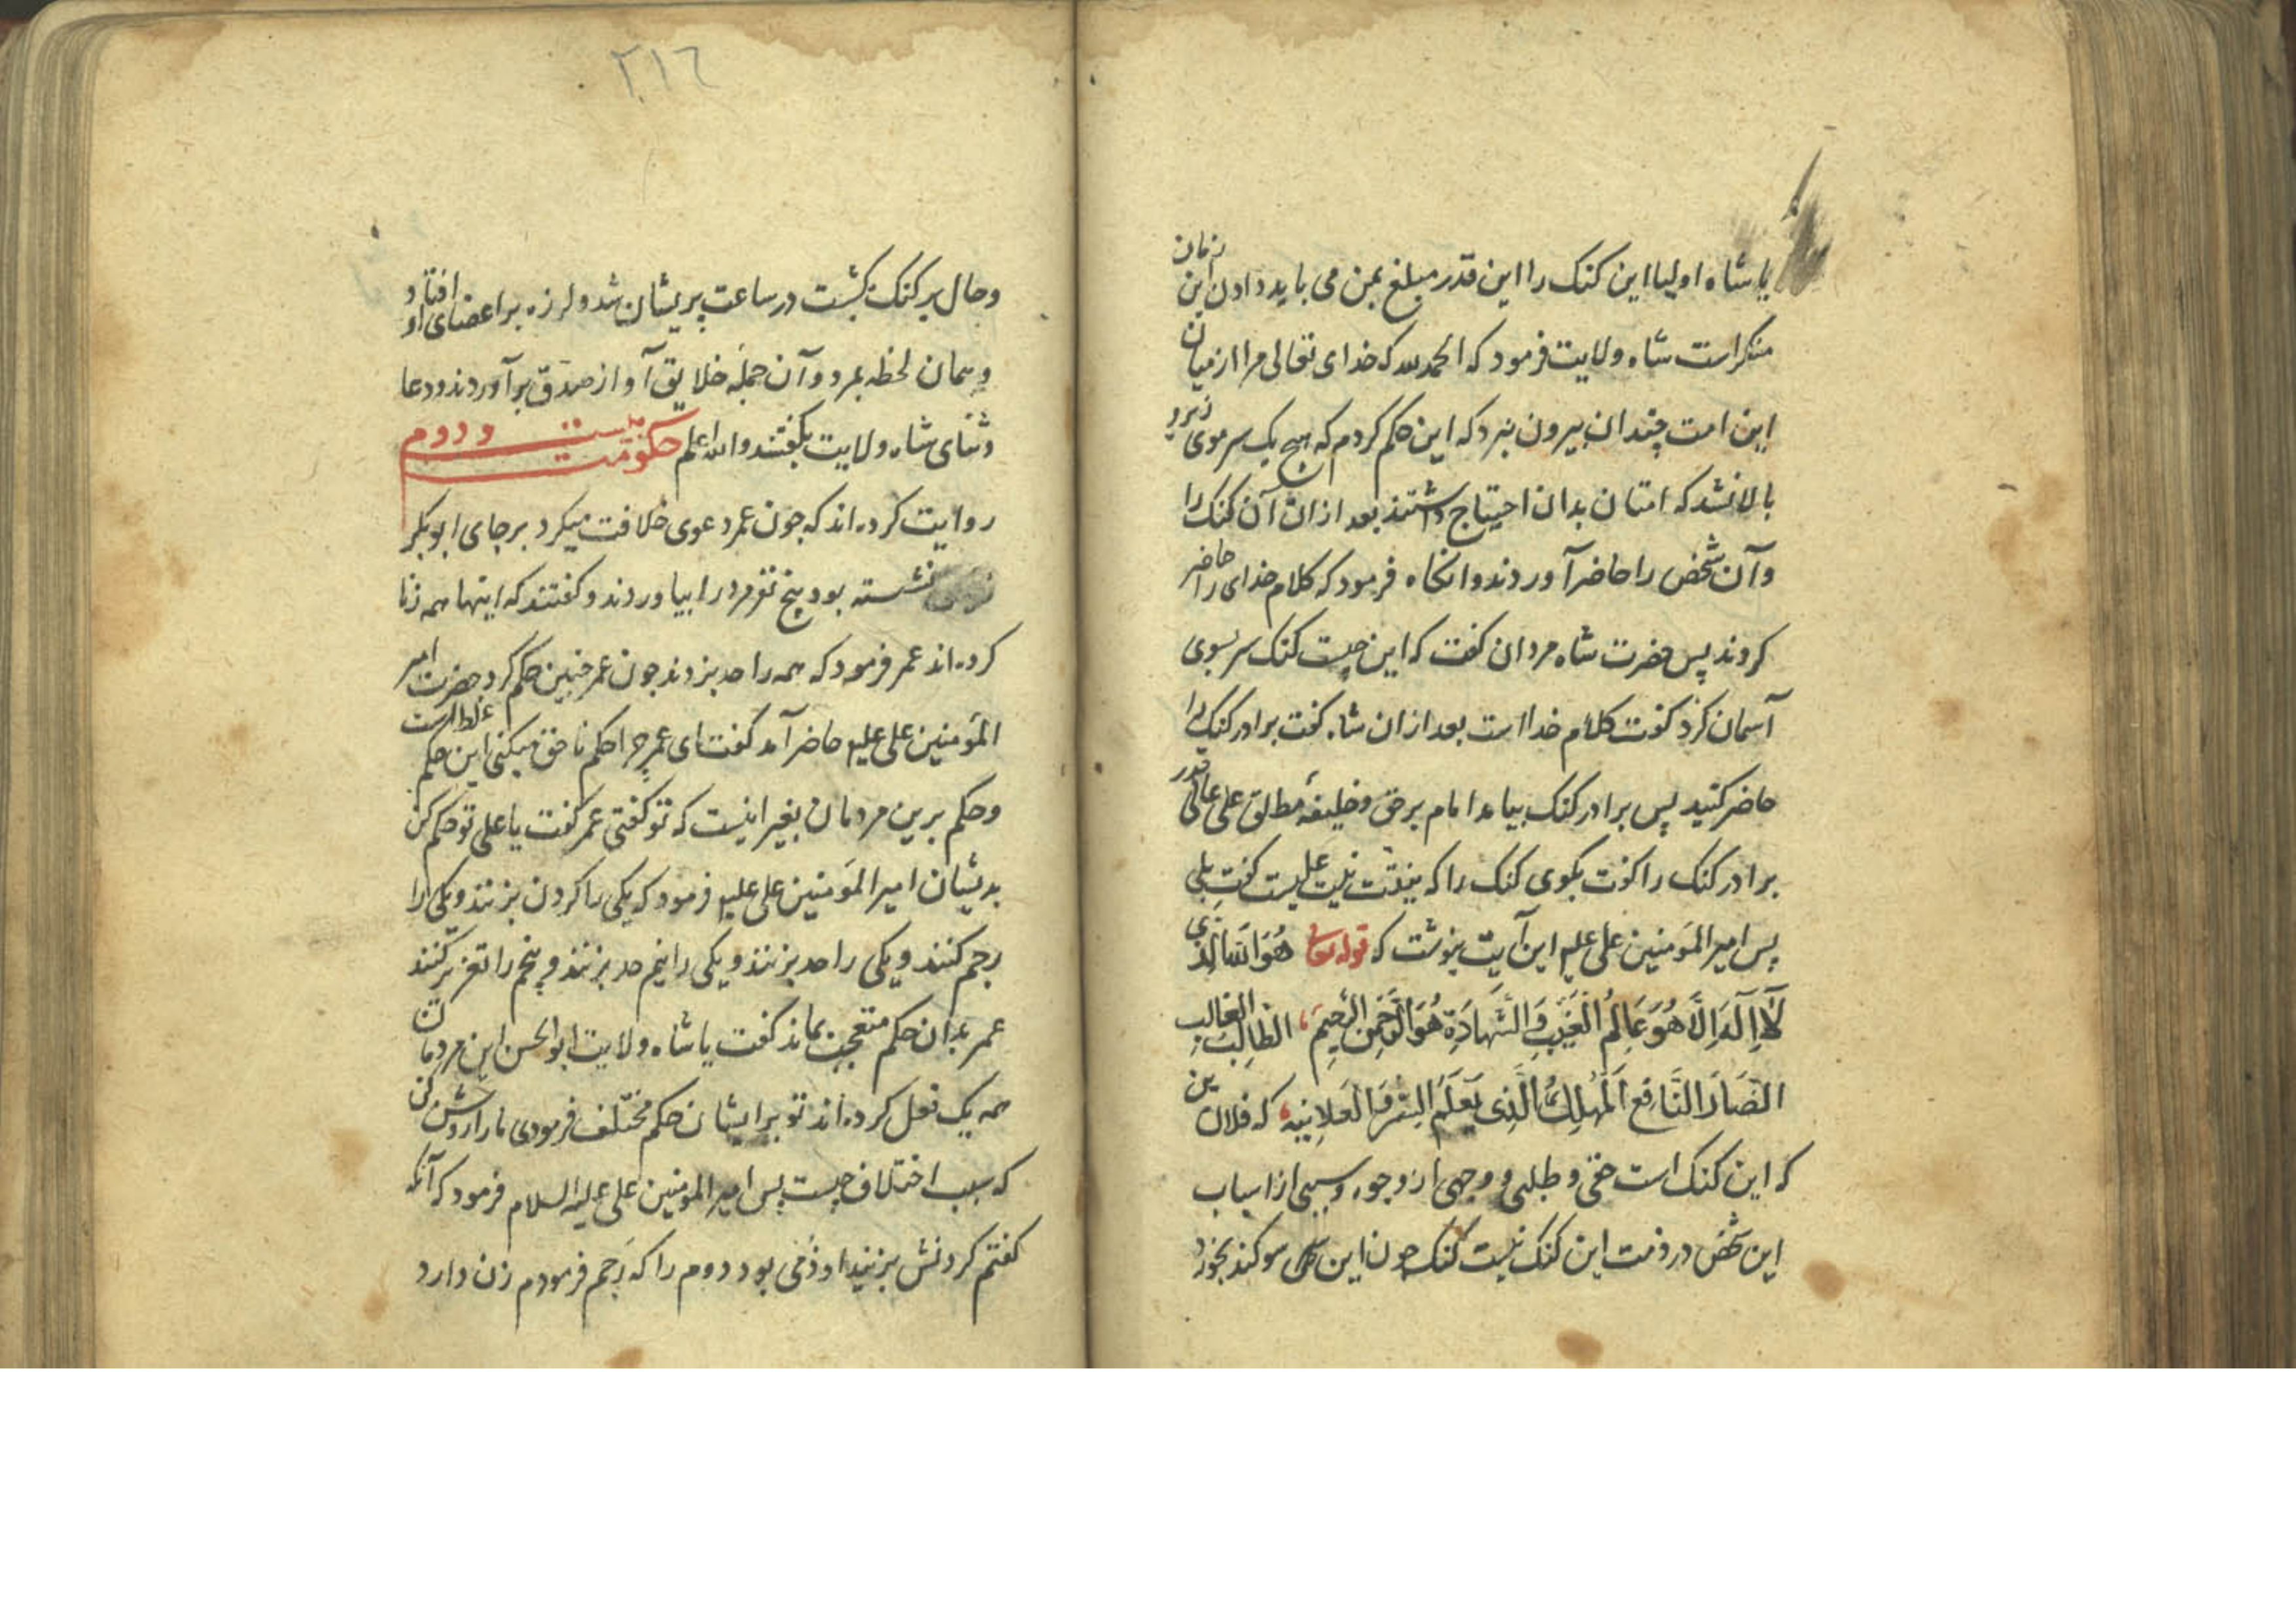 یا شاه اولیا این کنک را این قدر مبلغ بمن می باید دادن این زمان
منکر است شاه ولایت فرمود که الحمد لله که خدای تعالی مرا از میان
این امت چندان بیرون نبرد که این حکم کردم که هیچ یک سر موی زیر و
بالا نشد که امتان بدان احتیاج داشتند بعد از ان آن کنک را
وآن شخص را حاضر آوردند وانکاه فرمود که کلام خدای را حاضر
کردند پس حضرت شاه مردان کفت که این چیست کنک سر بسوی
آسمان کرد کفت کلام خدا است بعد از ان شاه کفت برادر کنک را
حاضر کنید پس برادر کنک بیامد امام بر حق وخلیفه مطلق علی عالی قدر
برادر کنک را کفت بکوی کنک را که علیست کفت بلی
پس امیر المؤمنین علی علیه این آیت بنوشت که قوله تعالی هُوَ اللّه الَّذی
لَا اِلٰهَ اِلَّا هُوَ عَالِمُ الْغَیْبِ وَ الشَّهَادَةِ هُوَ الرَّحْمٰنُ الرَّحِیمُ الطَّالِبُ الْغَالِب
الضَّارُّ النَّافِعُ الْمُهْلِکُ الَّذِی یَعْلَمُ السِّرَّ وَ الْعَلَانِیَه که فلان بن
که این کنک است حقی و طلبی و وجهی از وجوه وسببی از اسباب
این شخص در ذمت این کنک نیست کنک چون این سوکند بخورد
٢١٦
وحال بر کنک بکشت در ساعت پریشان شد ولرزه بر اعضای او افتاد و
وهمان لحظه بمرد وآن جمله خلایق آواز صدق برآوردند ودعا
وثنای شاه ولایت بکفتند والله اعلم حکومت بیست و دوم
روایت کرده اند که چون عمر دعوی خلافت میکرد بر جای ابو بکر
نشسته بود پنج نفر مرد را بیاوردند وکفتند که اینها همه زنا
کرده اند عمر فرمود که همه را حد بزدند چون عمر چنین حکم کرد حضرت امیر
المؤمنین علی علیه حاضر آمد کفت ای عمر چرا حکم نا حق میکنی این حکم غلط است
وحکم برین مردمان بغیر اینست که تو کفتی عمر کفت یا علی تو حکم کن
بدیشان امیر المؤمنین علی علیه فرمود که یکی را کردن بزنند ویکی را
رجم کنند ویکی را حد بزنند ویکی را نیم حد بزنند و پنجم را تعزیر کنند
عمر بدان حکم متعجب بماند کفت یا شاه ولایت ابو الحسن این مردمان
همه یک فعل کرده اند تو بر ایشان حکم مختلف فرمودی ما را روشن کن
که سبب اختلاف چیست پس امیر المؤمنین علی علیه السلام فرمود که آنکه
کفتم کردنش بزنید او ذمی بود دوم را که رجم فرمودم زن دارد